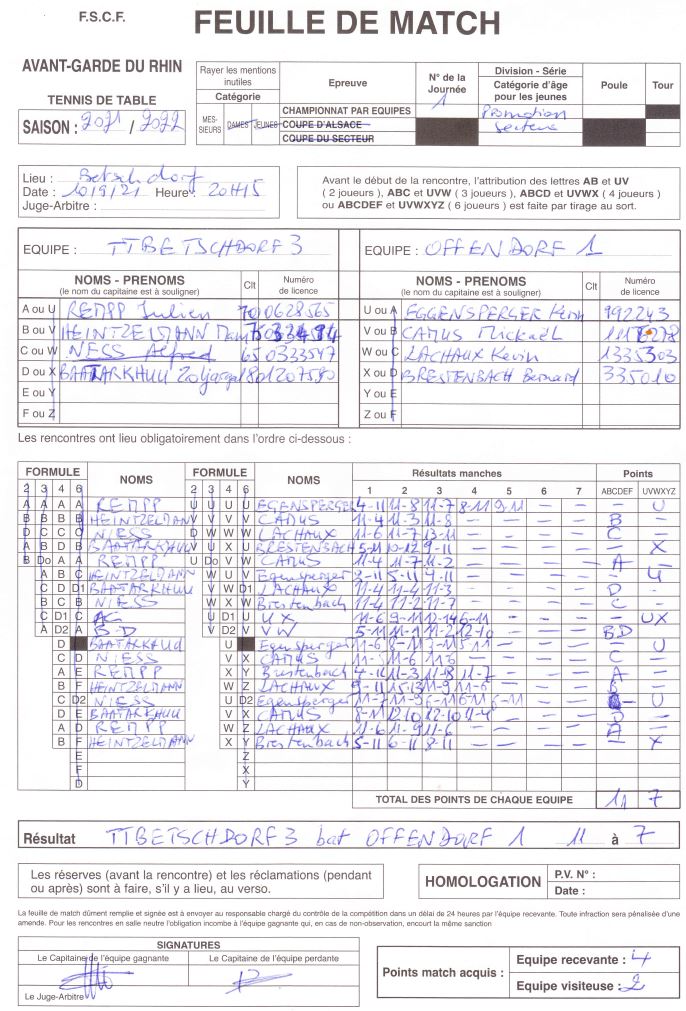 F.S.C.F.
FEUILLE DE MATCH
AVANT-GARDE DU RHIN
TENNIS DE TABLE
SAISON : 2021 / 2022
Rayer les mentions inutiles
Catégorie
MES-SIEURS DAMES JEUNES
Epreuve
CHAMPIONNAT PAR EQUIPES
COUPE D'ALSACE
COUPE DU SECTEUR
N° de la Journée
1
Division - Série
Catégorie d'âge pour les jeunes
Promotion
Poule
Tour
Lieu : Betschdorf
Date : 10/9/21 Heure : 20H15
Juge-Arbitre :
Avant le début de la rencontre, l'attribution des lettres AB et UV
( 2 joueurs ), ABC et UVW ( 3 joueurs ), ABCD et UVWX ( 4 joueurs )
ou ABCDEF et UVWXYZ ( 6 joueurs ) est faite par tirage au sort.
EQUIPE : TTBETSCHDORF 3
EQUIPE : OFFENDORF 1
NOMS - PRENOMS
(le nom du capitaine est à souligner)
Clt
Numéro de licence
NOMS - PRENOMS
(le nom du capitaine est à souligner)
Clt
Numéro de licence
A ou U REMPP Julien
U ou A EGGENSPERGER Kevin 992243
B ou V HEINTZELMANN
V ou B CAMUS Mickaël
C ou W NESS Alfred
W ou C LACHAUX Kevin 1335303
D ou X BAATARKHUU
X ou D BRESTENBACH Bernard 335010
E ou Y
Y ou E
F ou Z
Z ou F
Les rencontres ont lieu obligatoirement dans l'ordre ci-dessous :
FORMULE NOMS FORMULE NOMS Résultats manches Points
2 3 4 6 2 3 4 6 1 2 3 4 5 6 7 ABCDEF UVWXYZ
REMPP EGENSPERGER 4-11 11-8 11-7 8-11 9-11 U
HEINTZELMANN CAMUS 11-4 11-3 11-8 B
NIESS LACHAUX 11-6 11-7 13-11 C
BAATARKHUU BRESTENBACH 5-11 10-12 9-11 X
REMPP CAMUS 11-4 11-7 11-2 A
HEINTZELMANN Egensperger 5-11 U
BAATARKHUU LACHAUX 11-4 11-4 11-3 D
NIESS Brestenbach 11-4 11-2 11-7 C
AC UX 11-6 9-11 6-11 UX
BD VW 5-11 BD
BAATARKHUU Egensperger U
NIESS CAMUS C
REMPP Brestenbach 4-11 11-3 11-8 11-7 A
HEINTZELMANN LACHAUX 9-11 15-13 B
NIESS Egensperger U
BAATARKHUU CAMUS 8-11 12-10 12-10 11-4 D
REMPP LACHAUX 11-6 11-9 11-6 A
HEINTZELMANN Brestenbach 5-11 6-11 8-11 X
TOTAL DES POINTS DE CHAQUE EQUIPE 11 7
Résultat TTBETSCHDORF 3 bat OFFENDORF 1 11 à 7
Les réserves (avant la rencontre) et les réclamations (pendant
ou après) sont à faire, s'il y a lieu, au verso.
HOMOLOGATION
P.V. N° :
Date :
La feuille de match dûment remplie et signée est à envoyer au responsable chargé du contrôle de la compétition dans un délai de 24 heures par l'équipe recevante. Toute infraction sera pénalisée d'une
amende. Pour les rencontres en salle neutre l'obligation incombe à l'équipe gagnante qui, en cas de non-observation, encourt la même sanction
SIGNATURES
Le Capitaine de l'équipe gagnante
Le Capitaine de l'équipe perdante
Le Juge-Arbitre
Points match acquis :
Equipe recevante : 4
Equipe visiteuse : 2